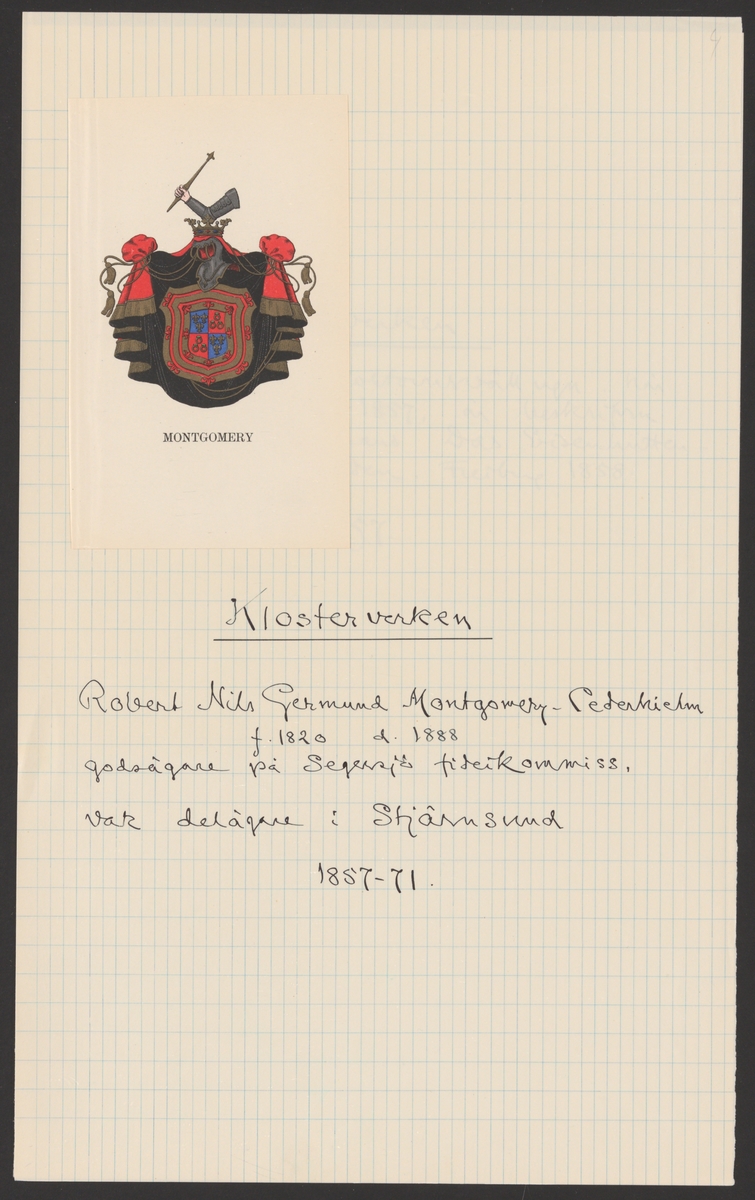 MONTGOMERY
Klosterverken
Robert Nils Germund Montgomery-Cederhielm
f. 1820 d. 1888
godsägare på Segersjö fideikommiss,
var delägare i Stjärnsund
1857-71.